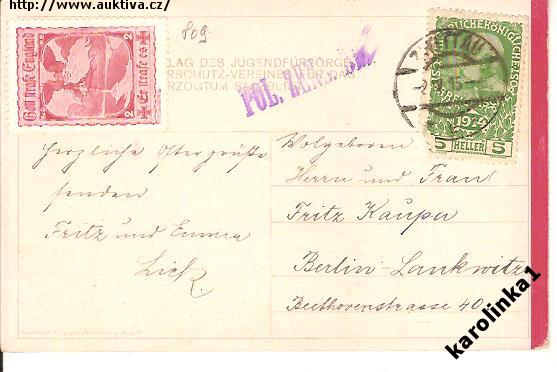 http://www.auktiva.cz/
809
Gott strafe England
Er strafe es
2 2
LAG DES JUGENDFÜRSORGE
RSCHUTZ-VEREINES FÜR DAS
RZOGTUM SALZBURG
POL.
1914
5 HELLER 5
Herzliche Ostergrüße
senden
Fritz und Emma
Lick
Wolgeboren
Herrn und Frau
Fritz Kaupa
Berlin-Lankwitz
Beethovenstrasse 40
karolinka1